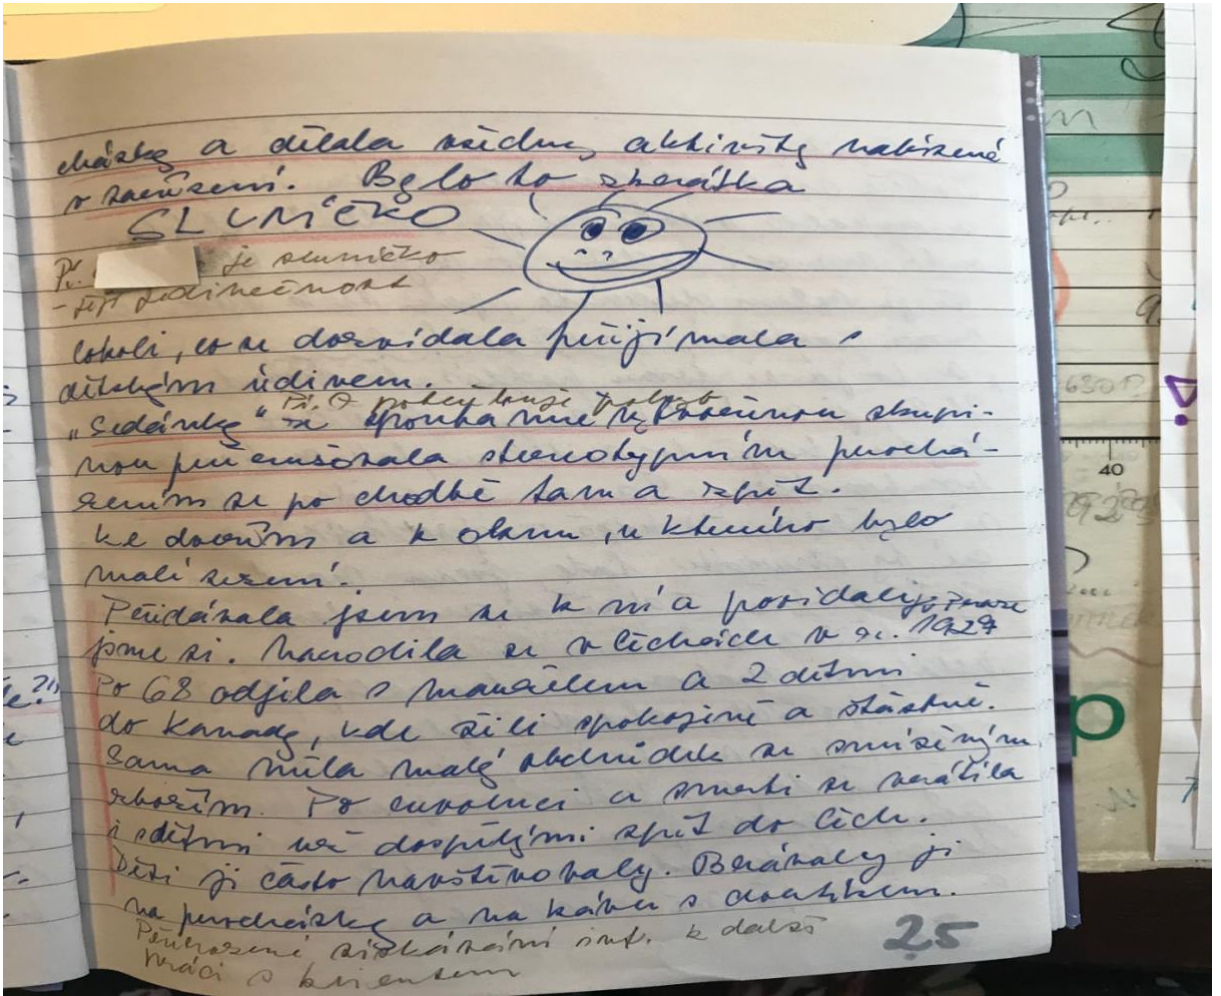 cházky a dělala všechny aktivity nabízené
v zařízení. Byla to zkrátka
SLUNÍČKO
je sluníčko
- její jedinečnost
Cokoli, co se dozvídala přijímala s
dětským údivem.
„Sedánky" se spontánně vytvořenou skupi-
nou přerušovala stereotypním prochá-
zením se po chodbě tam a zpět.
ke dveřím a k oknu, u kterého bylo
malé sezení.
Přidávala jsem se k ní a povídaly
jsme si. Narodila se v Čechách v r. 1927
v Praze
Po 68 odjela s manželem a 2 dětmi
do Kanady, kde žili spokojeně a šťastně.
Sama měla malý obchůdek se smíšeným
zbožím. Po revoluci a smrti se vrátila
i s dětmi už dospělými zpět do Čech.
Děti ji často navštěvovaly. Berávaly ji
na procházky a na kávu s dortíkem.
Přirozené získávání inf. k další
práci s klientem
25
40